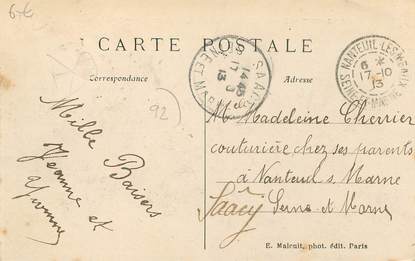 6-€
CARTE POSTALE
Correspondance
Adresse
92)
NANTEUIL-LES-MEAUX
6 *
17-10
13
SEINE-ET-MARNE
SAACY
14 45
17 - 
13
SEINE ET MARNE
Mille Baisers
Jeanne et
Yvonne
Melle Madeleine Cherrier
couturière chez ses parents
à Nanteuil s Marne
Saâcy Seine-et-Marne
E. Malcuit, phot. édit. Paris